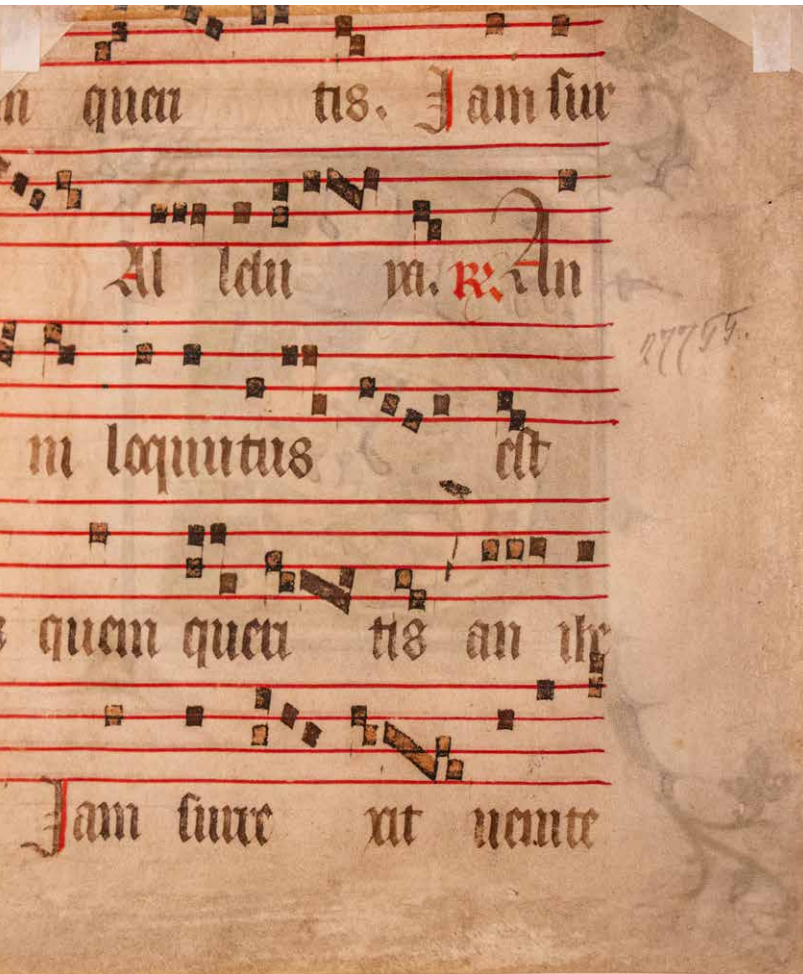 queri tis. Jam sur
Al lelu ya. R. An
ni loquutus est
quem queri tis an ihe
Jam surre xit uenite